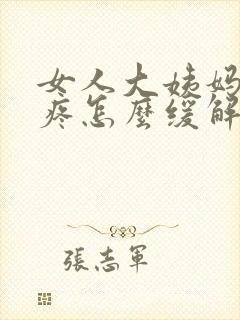 女人大姨妈
疼怎麼缓解
張志軍